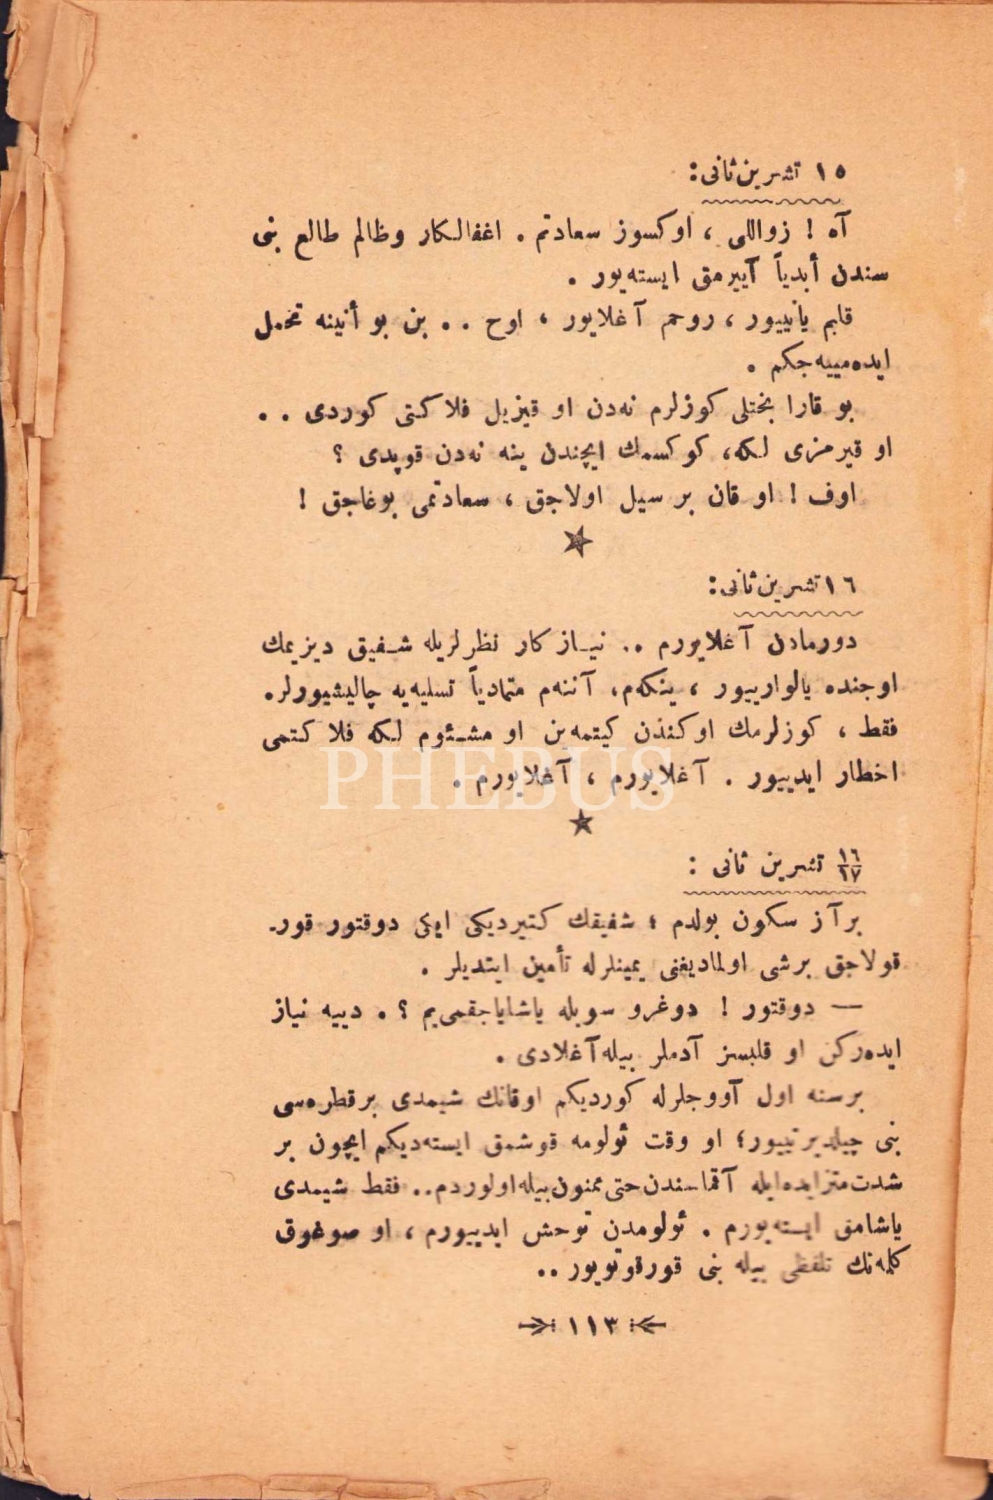 ١٥ تشرین ثانی:
آه ! زواللی ، اوکسوز سعادتم . اغفالکار وظالم طالع بنی
سندن أبدیاً آییرمق ایسته‌یور .
قلبم یانییور ، روحم آغلایور ، اوح . . بن بو أنینه تحمل
ایده‌مییه‌جکم .
بو قارا بختلی کوزلرم نه‌دن او قیزیل فلاکتی کوردی . .
او قیرمزی لکه، کوکسمك ایچندن ینه نه‌دن قوپدی ؟
اوف ! او قان بر سیل اولاجق ، سعادتمی بوغاجق !
١٦ تشرین ثانی:
دورمادن آغلایورم .. نیازکار نظرلریله شفیق دیزیمك
اوجنده یالوارییور ، ینکه‌م، آننه‌م متمادیاً تسلیه‌یه چالیشیورلر.
فقط ، کوزلرمك اوکندن کیتمه‌ین او مشئوم لکه فلاکتمی
اخطار ایدییور . آغلایورم ، آغلایورم .
PHEBUS
١٦/١٧ تشرین ثانی :
برآز سکون بولدم ؛ شفیقك کتیردیکی ایکی دوقتور قور-
قولاجق برشی اولمادیغنی یمینلرله تأمین ایتدیلر .
— دوقتور ! دوغرو سویله یاشایاجقمی‌یم ؟ . دییه نیاز
ایده‌رکن او قلبسز آدملر بیله آغلادی .
برسنه اول آووجلرله کوردیکم اوقانك شیمدی برقطره‌سی
بنی چیلدیرتییور؛ او وقت ئولومه قوشمق ایسته‌دیکم ایچون بر
شدت متزایده‌ایله آقماسندن حتی ممنون بیله اولوردم.. فقط شیمدی
یاشامق ایسته‌یورم . ئولومدن توحش ایدییورم ، او صوغوق
کلمه‌نك تلفظی بیله بنی قورقوتویور ..
١١٣